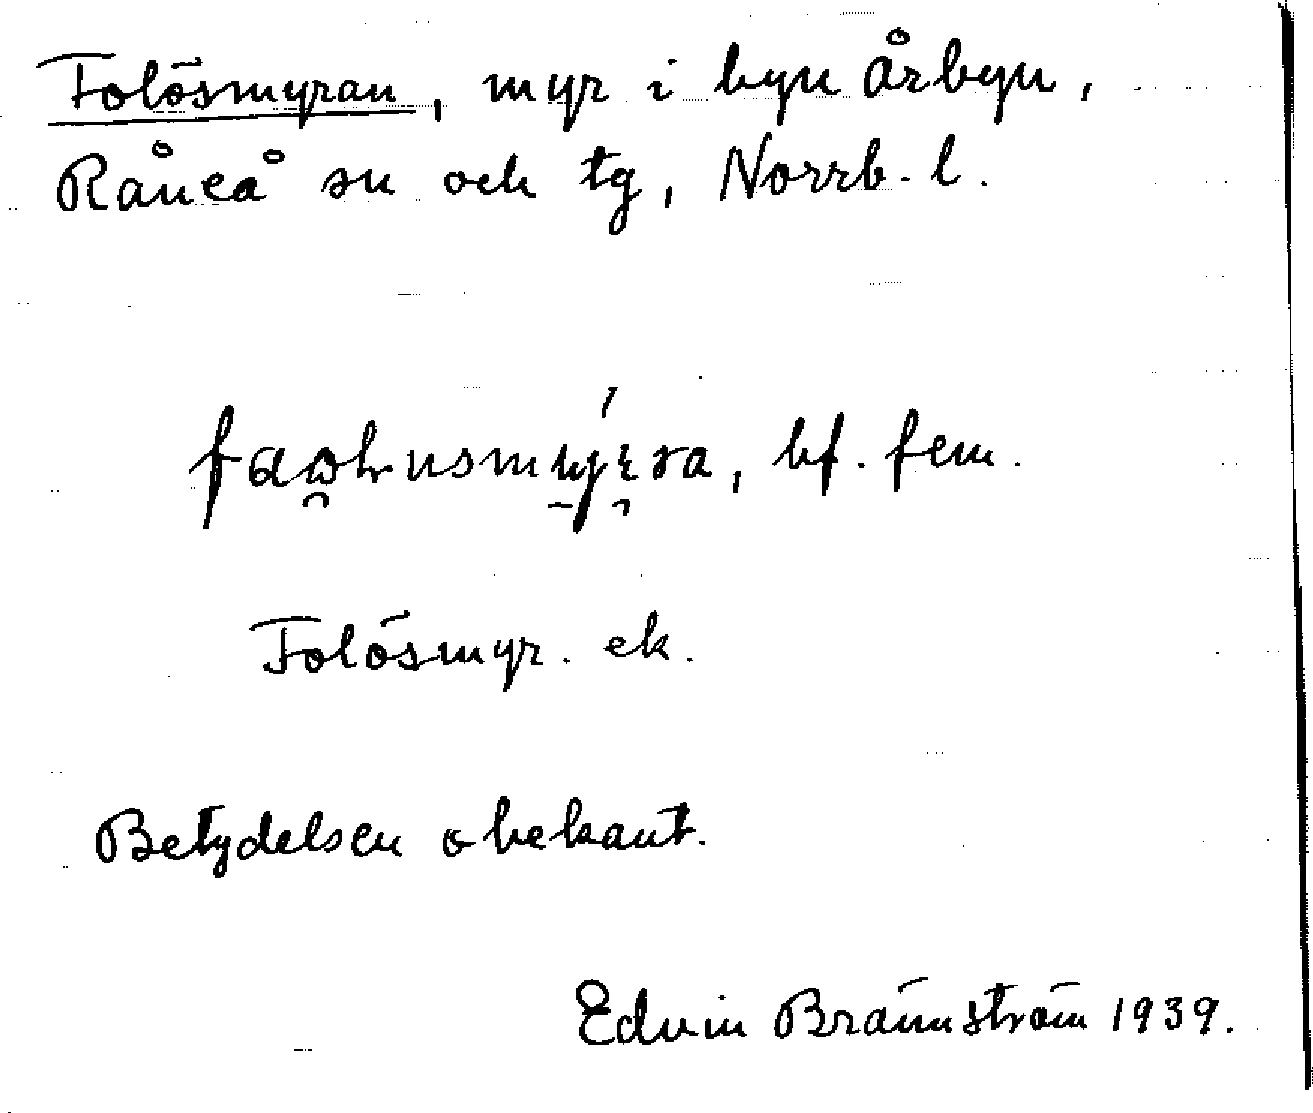 Folösmyran, myr i byn Årbyn,
Råneå sn och tg, Norrb. l.
bf. fem.
Folösmyr. ek.
Betydelsen obekant.
Edvin Brännström 1939.